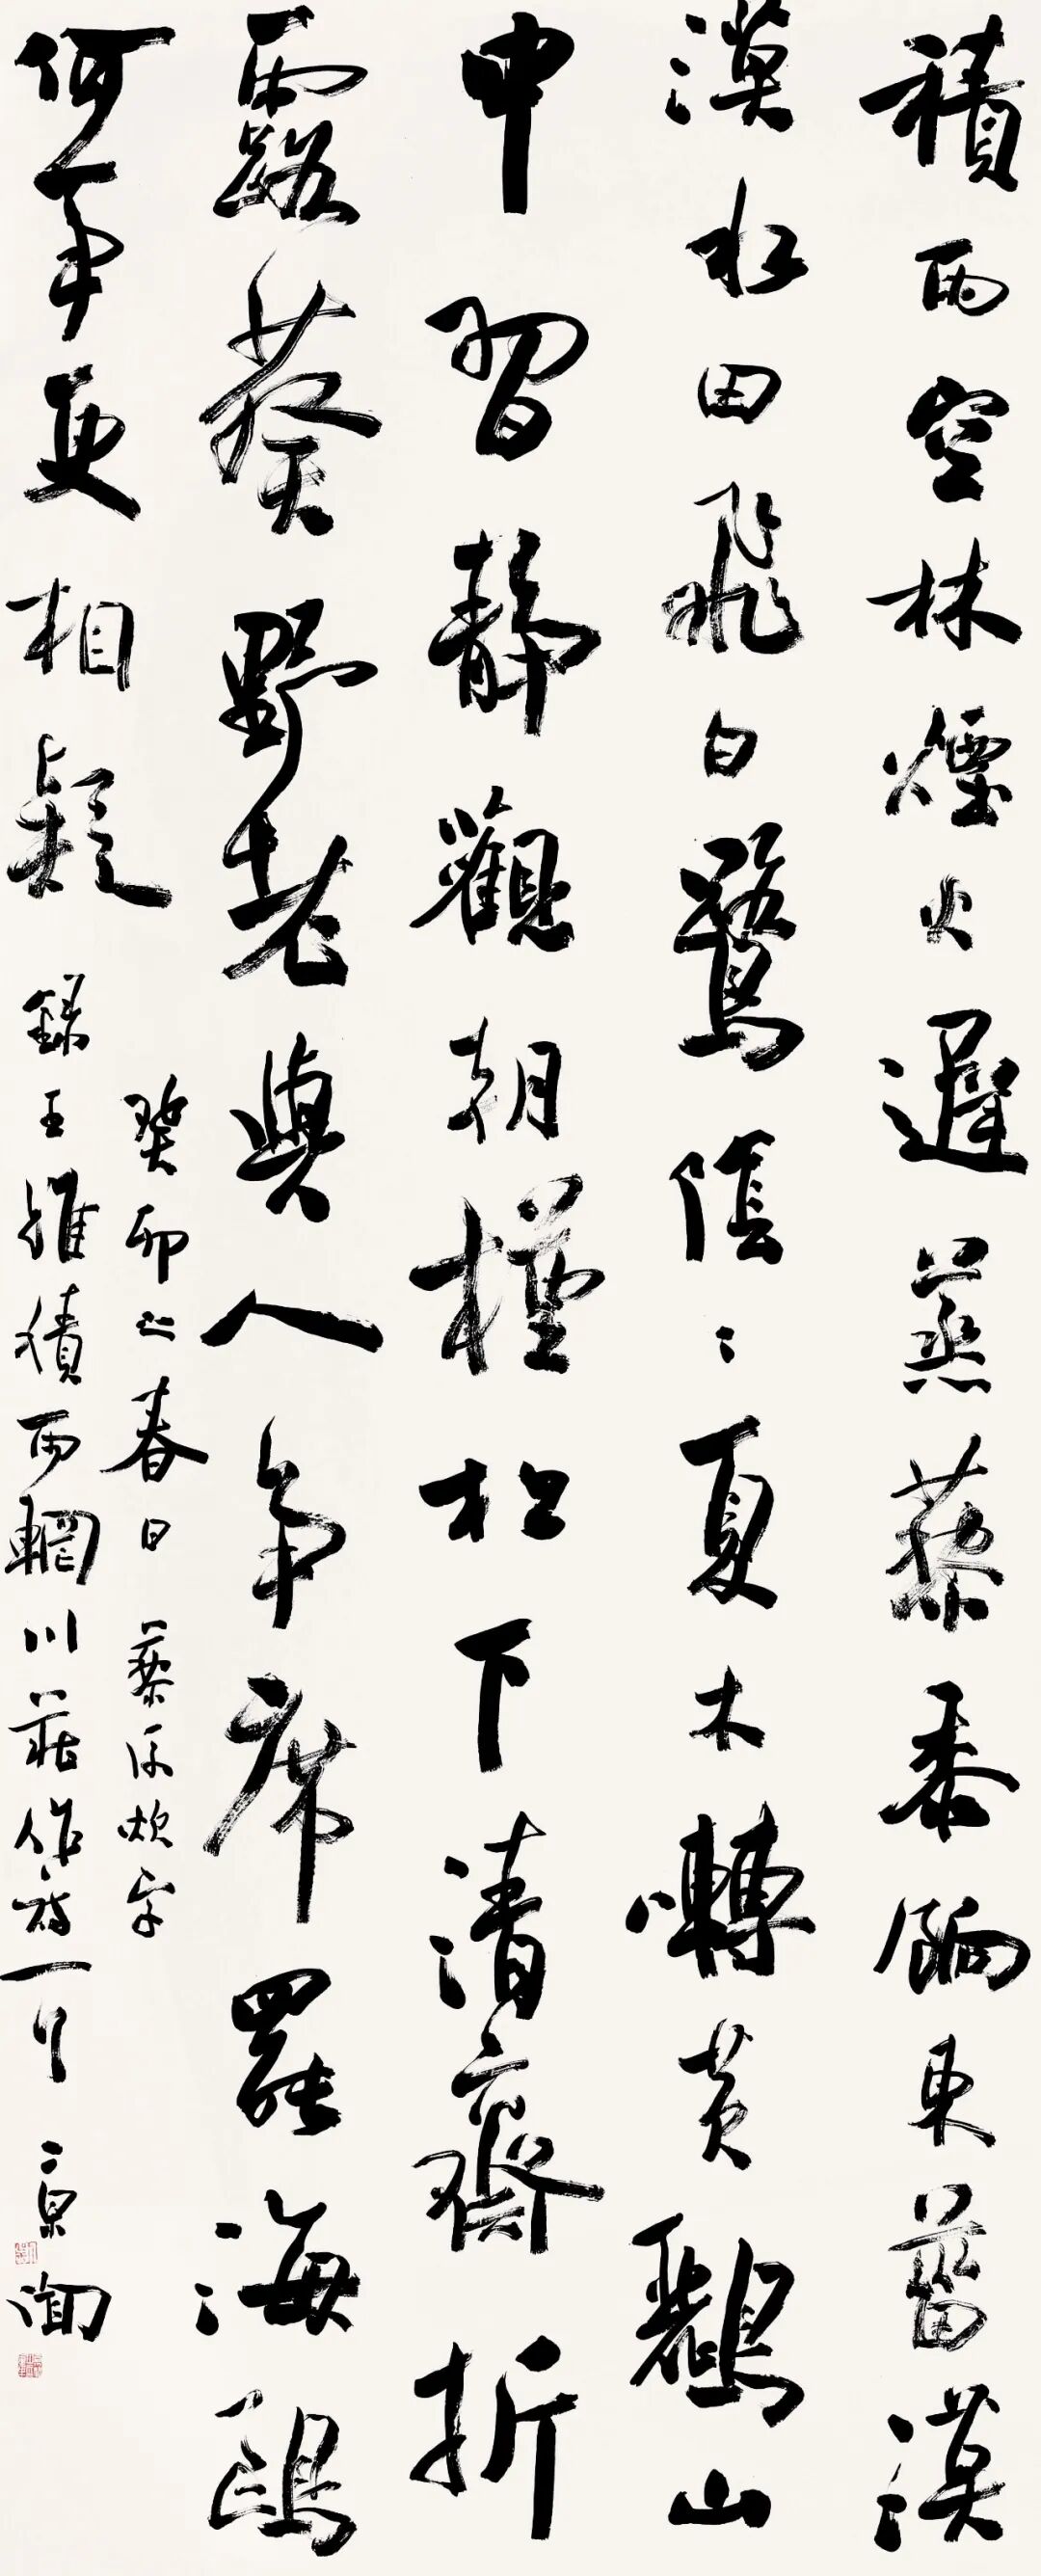 積雨空林煙火遲蒸藜黍餉東菑漠
漠水田飛白鷺陰〻夏木囀黃鸝山
中習靜觀朝槿松下清齋折
露葵野老與人爭席罷海鷗
何事更相疑
癸卯之春日 藜後炊字
錄王維積雨輞川莊作詩一首